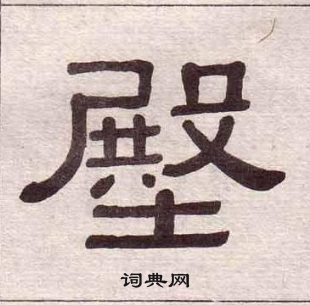 壂
词典网